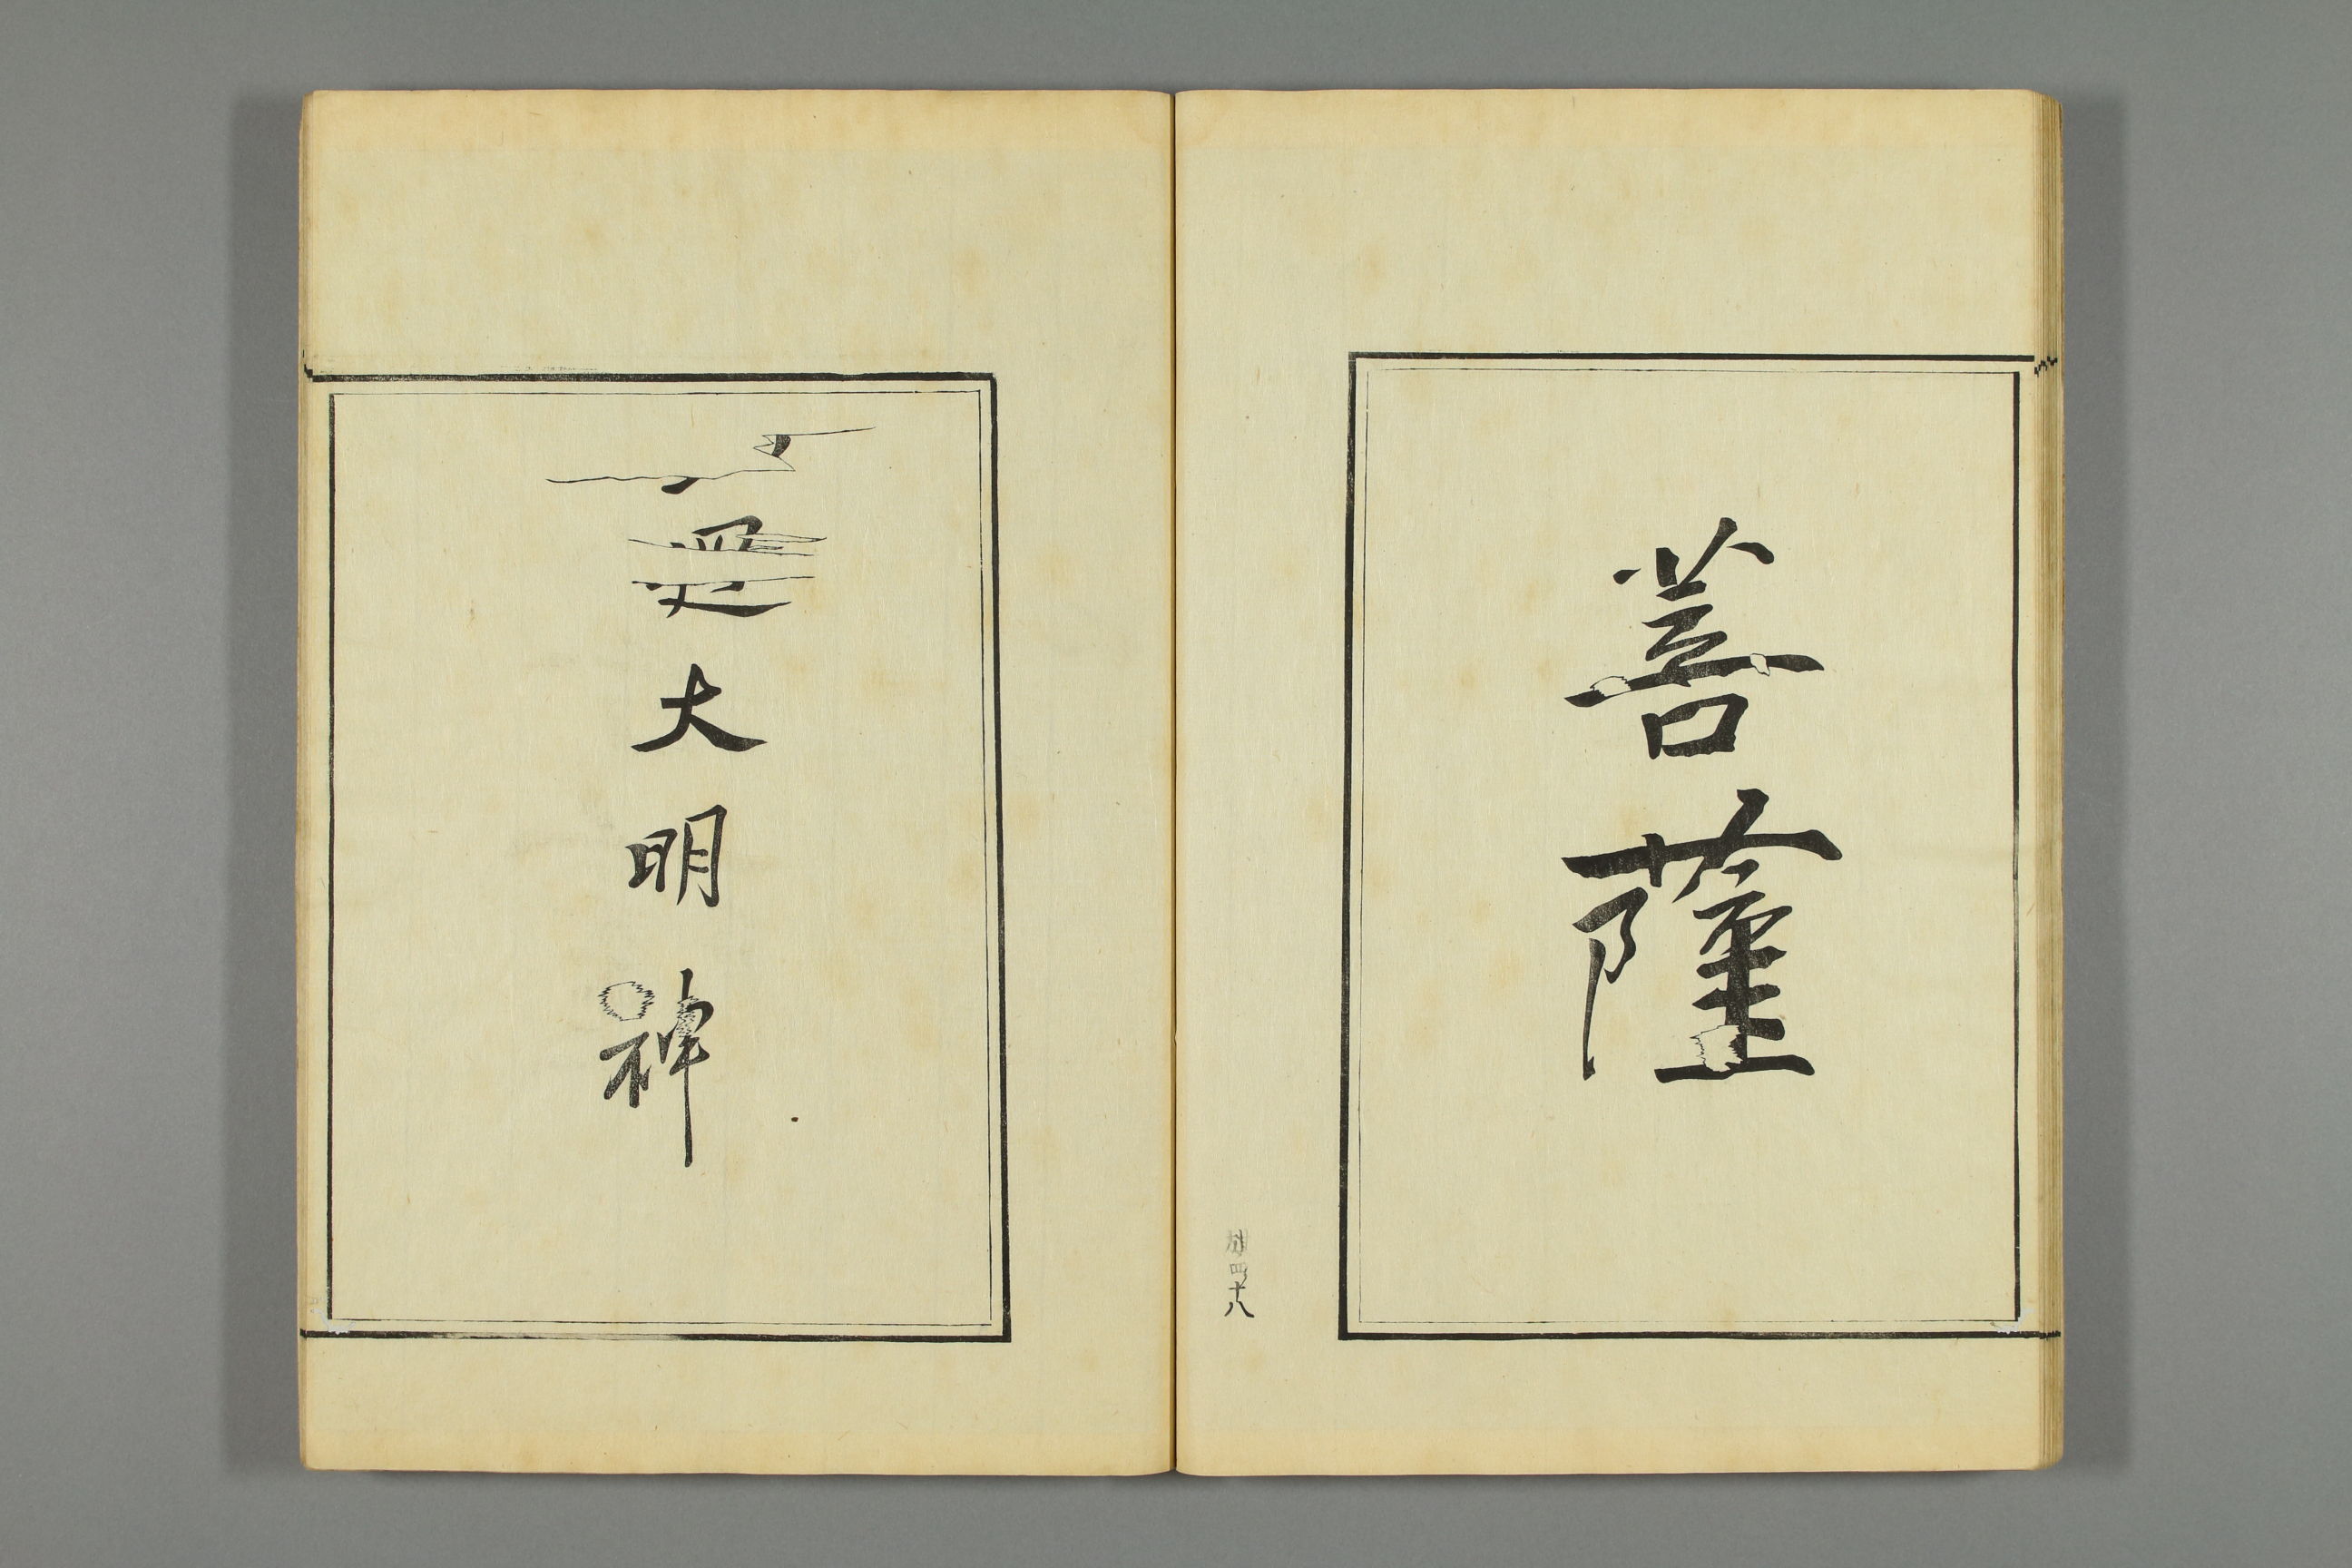 菩薩
四十八
大明神